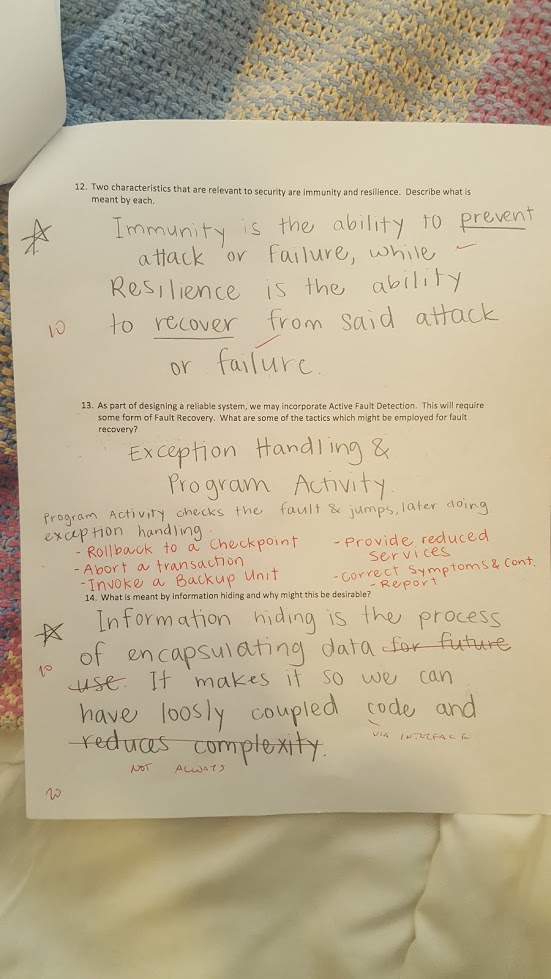 12. Two characteristics that are relevant to security are immunity and resilience. Describe what is
meant by each.
Immunity is the ability to prevent
attack or failure, while
Resilience is the ability
10
to recover from said attack
or failure.
13. As part of designing a reliable system, we may incorporate Active Fault Detection. This will require
some form of Fault Recovery. What are some of the tactics which might be employed for fault
recovery?
Exception Handling &
Program Activity.
Program Activity checks the fault & jumps, later doing
exception handling.
- Rollback to a Checkpoint
- Abort a transaction
- Invoke a Backup Unit
- Provide reduced
services
- Correct Symptoms & Cont.
- Report
14. What is meant by information hiding and why might this be desirable?
Information hiding is the process
10
of encapsulating data for future
use. It makes it so we can
have loosly coupled code and
VIA INTERFACE
reduces complexity.
NOT ALWAYS
20